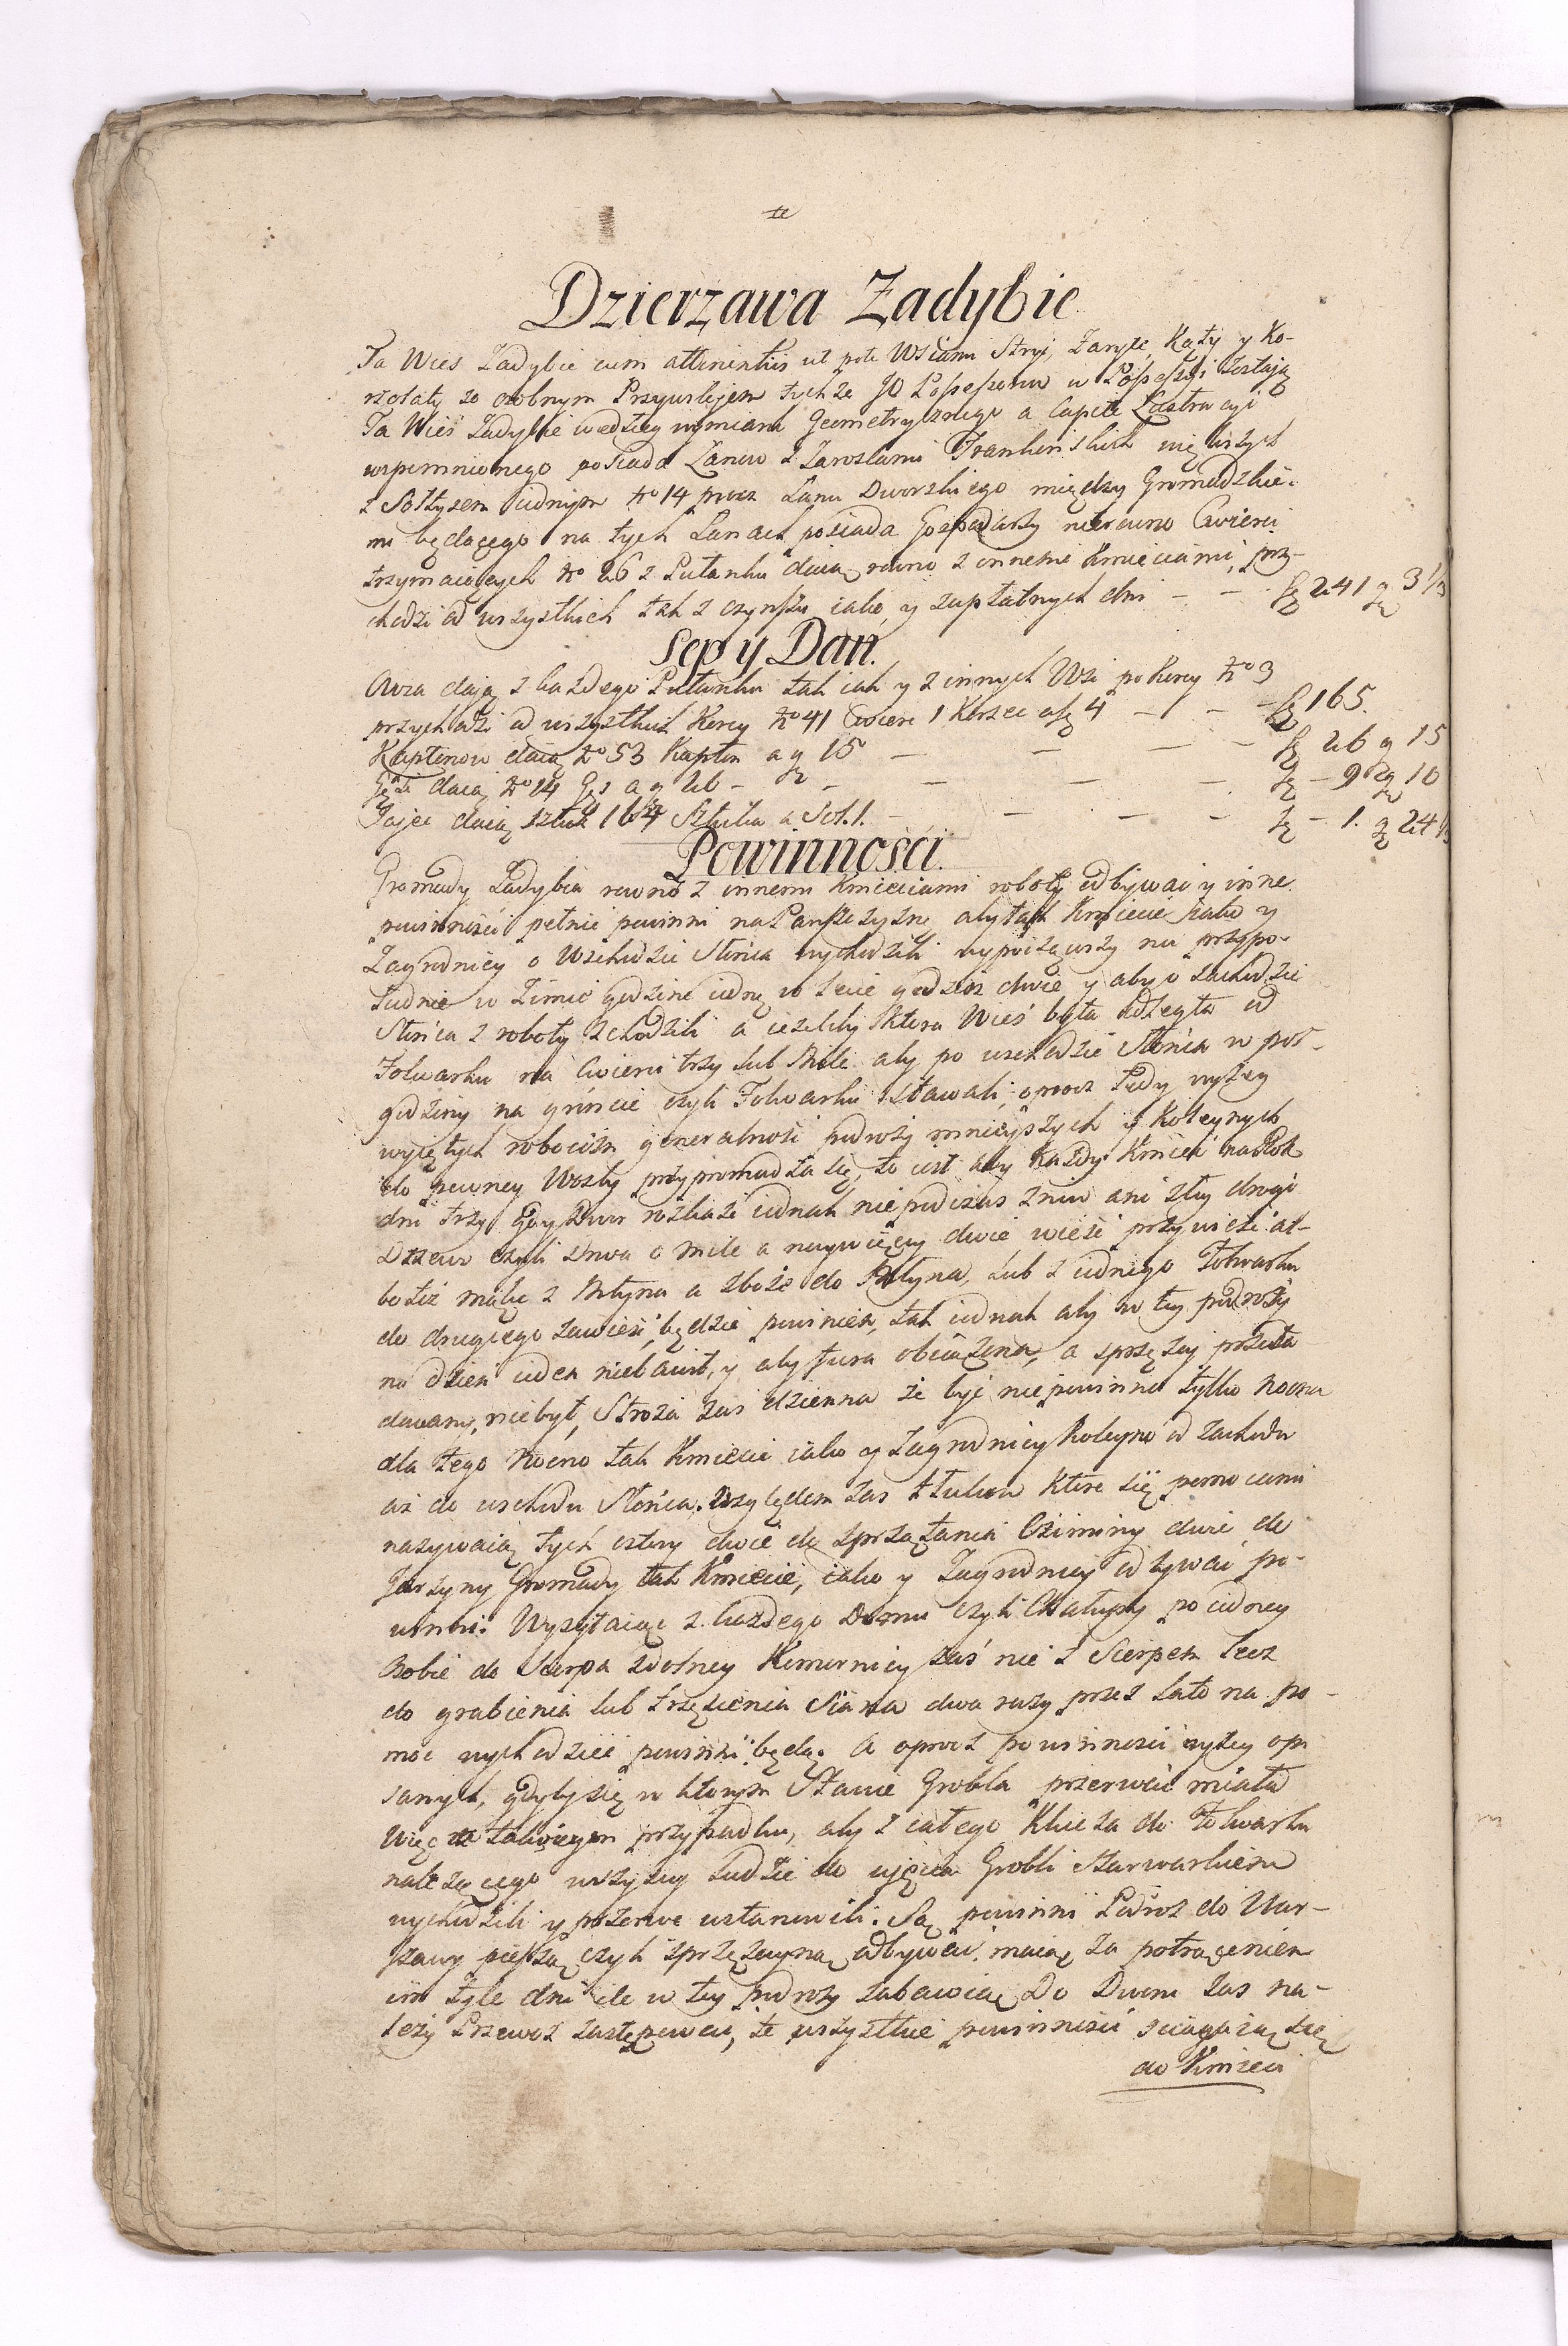 Dzierzawa Zadybie
Ta Wies Zadybie cum attinentiis ut pote Wsiami Stryi, Zaryte, Kąty y Ko-
rzołaty ze osobnym Przywilejem tychże JO w Possessyi zostają
Ta Wieś Zadybie według wymiaru Geometrycznego a Capite Lustracyi
wspomnionego posiada Łanow z Zaroslami Frankenskich większych
z Sołtysem iednym No 14 procz Łanu Dworskiego między Gromadzkie-
mi będącego na tych Łanach posiada Gospodarzy nierowno Cwierci
trzymaiących No 26 z Pułanku daią rowno z innemi Kmieciami, prz-
chodzi od wszystkich tak z czynszu iako y zapłatnych dni - - fl 241 g 3 1/3
Sep y Dań.
Owsa dają z każdego Pułanku tak iak y z innych Wsi po Korcy No 3
przychodzi od wszystkich Korcy No 41 Cwierc 1 Korzec a fl 4 - - fl 165.
Kapłonow daią No 53 Kapłon a g 15 - - - fl 26 g 15
Gęsi daią No 14 Gęś a g 20 - - - - fl - 9 g 10
Jajec daią sztuk 164 Sztuka a Sol. 1. - - - fl - 1. g 24
Powinności.
Gromady Zadybia rowno z innemi Kmieciami roboty odbywać y inne
powinności pełnić powinni na Panszczyznę aby tak Kmiecie iako y
Zagrodnicy o Wschodzie Słońca wychodzili wypocząwszy na przypo-
łudnie w Zimie godzinę iedną w Lecie godzin dwie y aby o zachodzie
Słońca z roboty schodzili a ieżeliby ktora Wieś była odległa od
Folwarku na Cwierci trzy lub Milę aby po wschodzie Słońca w poł-
godziny na gruncie czyli Folwarku stawali, oprocz Tedy wyżey
wyiętych robocizn generalność podroży mnieyszych y Koleynych
do pewney Wosty przyprowadza się, to iest aby każdy Kmieć na Rok
dni trzy gdy Dwor rozkaże iednak nie podczas żniw ani złey drogi
Drzewo czyli Drwa o milę a naywięcey dwie wieść przywieść al-
bo też mąkę z Młyna a zboże do Młyna, lub z iednego Folwarku
do drugiego zawieść, będzie powinien, tak iednak aby w tey podroży
na dzień ieden niebawił, y aby fura obciążona, a sprzężay przeła
dowany, niebył, Stroża zaś dzienna że być niepowinna tylko Nocna
dla tego Nocno tak Kmiecie iako y Zagrodnicy Koleyno od zachodu
aż do wschodu Słońca. Względem zas Tłuków ktore się pomocami
nazywaią tych cztery dwie do sprzątania Oziminy dwie do
Jarzyny Gromady tak Kmiecie, iako y Zagrodnicy odbywać po-
winni. Wysyłaiąc z każdego Domu czyli Chałupy po iedney
Osobie do Sierpa zdolney Komornicy zaś nie z Sierpem lecz
do grabienia lub trzęsienia Siana dwa razy przez Lato na po-
moc wychodzić powinni będą. A oprocz powinności wyżey opi
sanych, gdyby się w ktorym Stawie Grobla przerwać miała
Więc w takowym przypadku, aby z całego Klucza do Folwarku
należącego wszyscy Ludzie do ujęcia Grobli Szarwarkiem
wychodzili y przerwę ustanowili. Są powinni Podroż do War-
szawy pieszą czyli sprzężayną odbywać. maiąc za potrąceniem
im tyle dni ile w tey podroży zabawią Do Dworu zas na-
leży Przewoz zastępować, te wszystkie powinności sciągaią się
do Kmieci